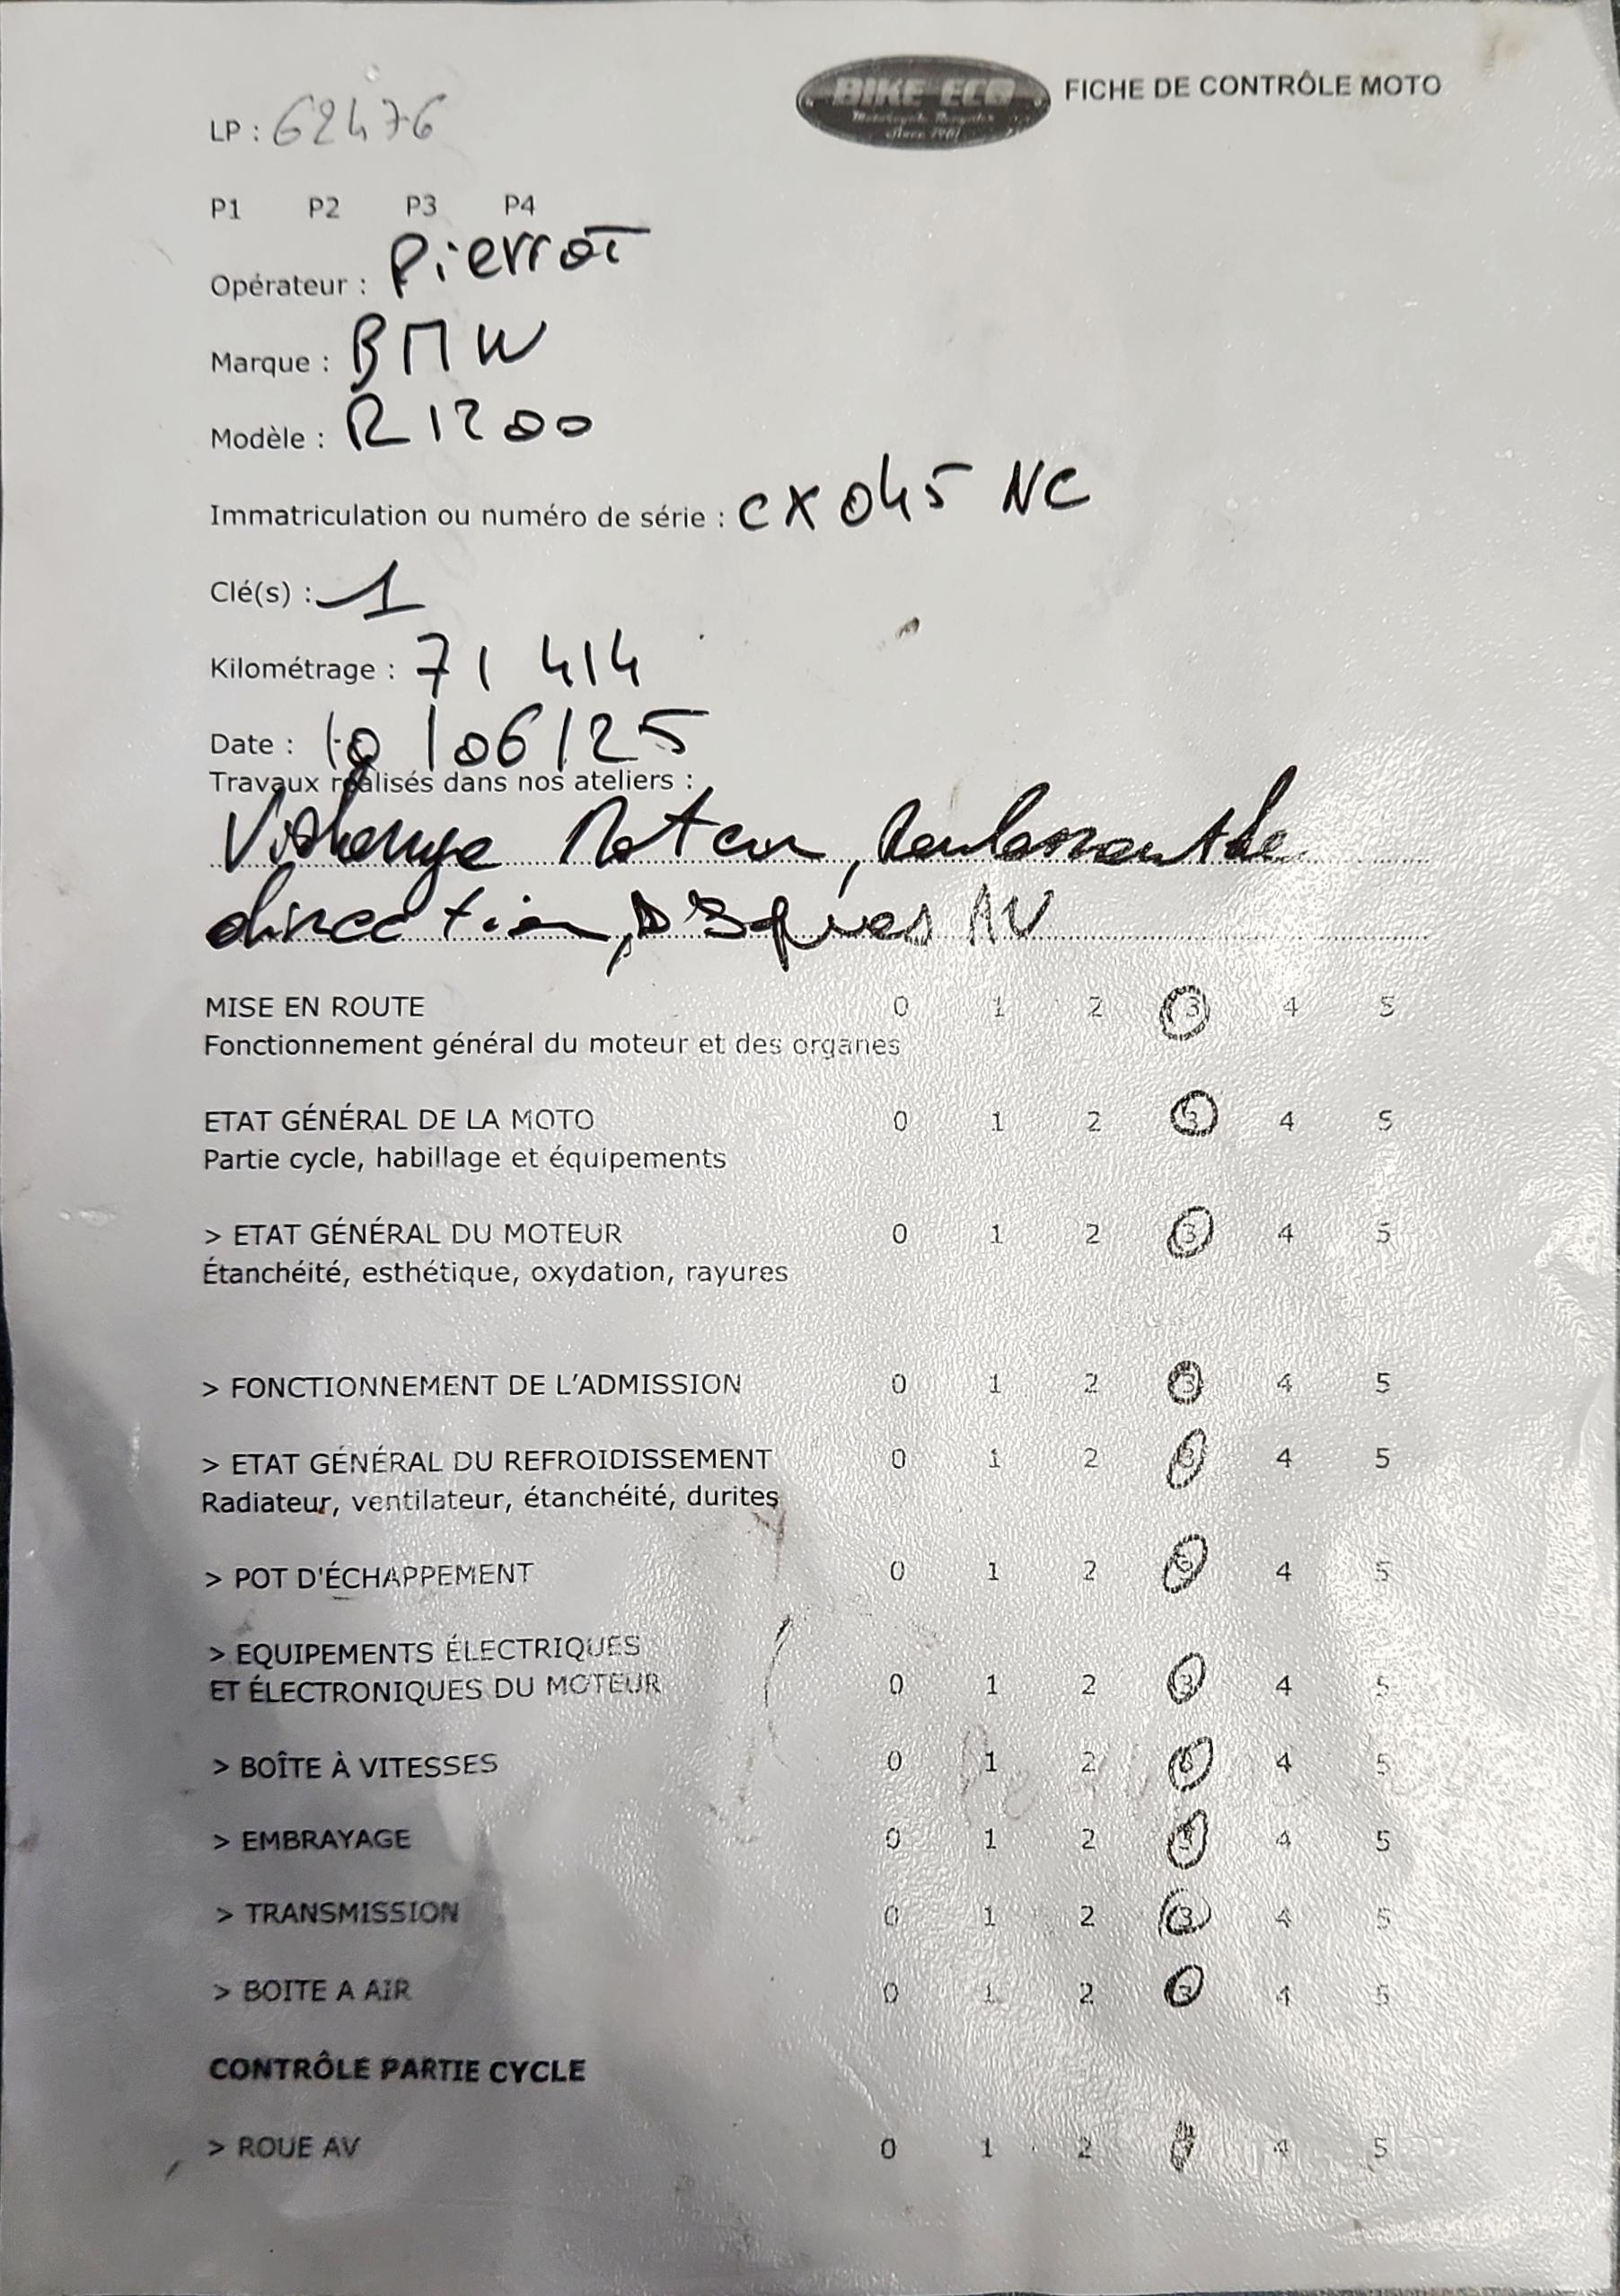 BIKE ECO
FICHE DE CONTRÔLE MOTO
LP : 62476
P1 P2 P3 P4
Opérateur : Pierrot
Marque : BMW
Modèle : R1200
Immatriculation ou numéro de série : CX045 NC
Clé(s) : 1
Kilométrage : 71 414
Date : 10/06/25
Travaux réalisés dans nos ateliers :
Moteur, Roulement de
direction, Disques AV
MISE EN ROUTE 0 1 2 3 4 5
Fonctionnement général du moteur et des organes
ETAT GÉNÉRAL DE LA MOTO 0 1 2 3 4 5
Partie cycle, habillage et équipements
> ETAT GÉNÉRAL DU MOTEUR 0 1 2 3 4 5
Étanchéité, esthétique, oxydation, rayures
> FONCTIONNEMENT DE L'ADMISSION 0 1 2 3 4 5
> ETAT GÉNÉRAL DU REFROIDISSEMENT 0 1 2 3 4 5
Radiateur, ventilateur, étanchéité, durites
> POT D'ÉCHAPPEMENT 0 1 2 3 4 5
> EQUIPEMENTS ÉLECTRIQUES
ET ÉLECTRONIQUES DU MOTEUR 0 1 2 3 4 5
> BOÎTE À VITESSES 0 1 2 3 4 5
> EMBRAYAGE 0 1 2 3 4 5
> TRANSMISSION 0 1 2 3 4 5
> BOITE A AIR 0 1 2 3 4 5
CONTRÔLE PARTIE CYCLE
> ROUE AV 0 1 2 3 4 5